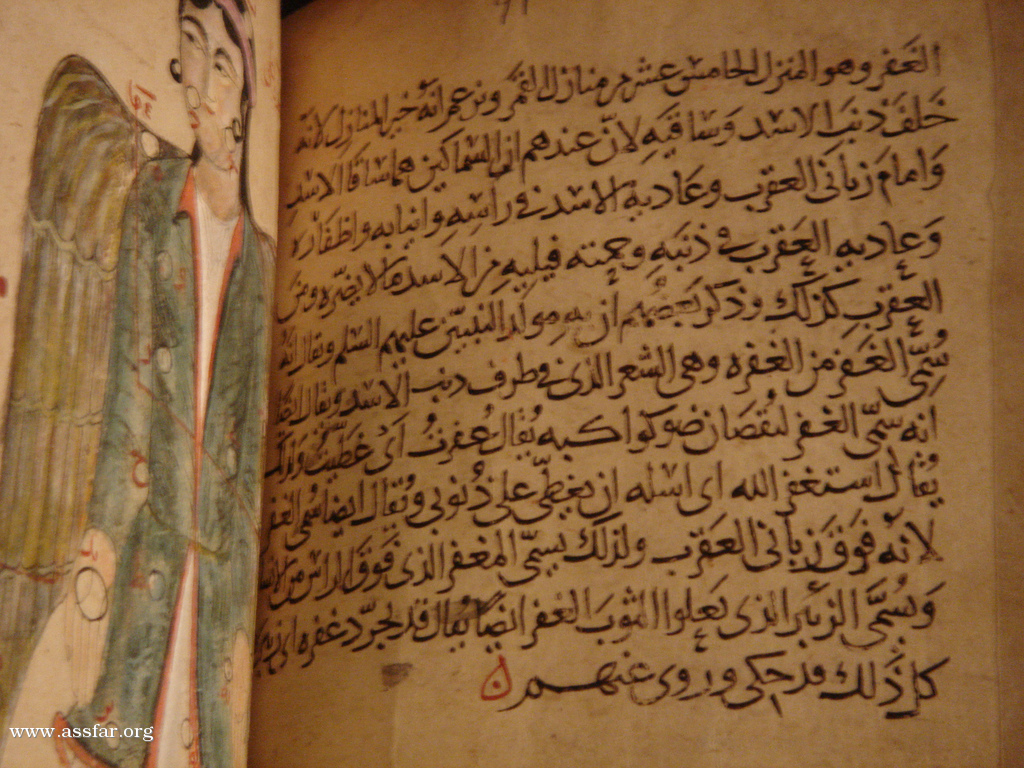 الغَفر وهو المنزل الخامس عشر من منازل القمر ونزعم انّه خير المنازل لانه
خَلفَ ذنَب الاسد وَسَاقَيه لانّ عندهم ان السماكين هما ساقا الاسد
وَامامَ زبانَى العقرب وعَاديةُ الاسد فى راسِه وانيابه واظفاره
وَعاديه العَقرب فى ذنبَهِ وحمته فيليهِ من الاسد ما لا يضرّه ومن
العقربِ كذلك وذكر بَعضُهم أن به مولد النبيّين عليهم السّلم ويقال انّه
سُمِّى الغَفر من الغفره وهى الشعر الذى فى طرف ذنب الاسد ويقال
انه سمّى الغفر لنقصان ضو كواكبه يُقال غفرتُ اى غَطّيتُ
يُقال استغفر الله اى اسئله ان يغطّى على ذُنوبى ويُقال ايضا سُمى الغفر
لانّه فَوقَ زبانى العقرب ولذلك يسمّى المغفر الذى فَوق الراس
وَيُسَمَّى الزئبر الذى يَعلوا الثوبَ الغفر ايضًا يُقال قد تجرّد غفره
كل ذَلك قد حكى وروى عنهم
ن
www.assfar.org